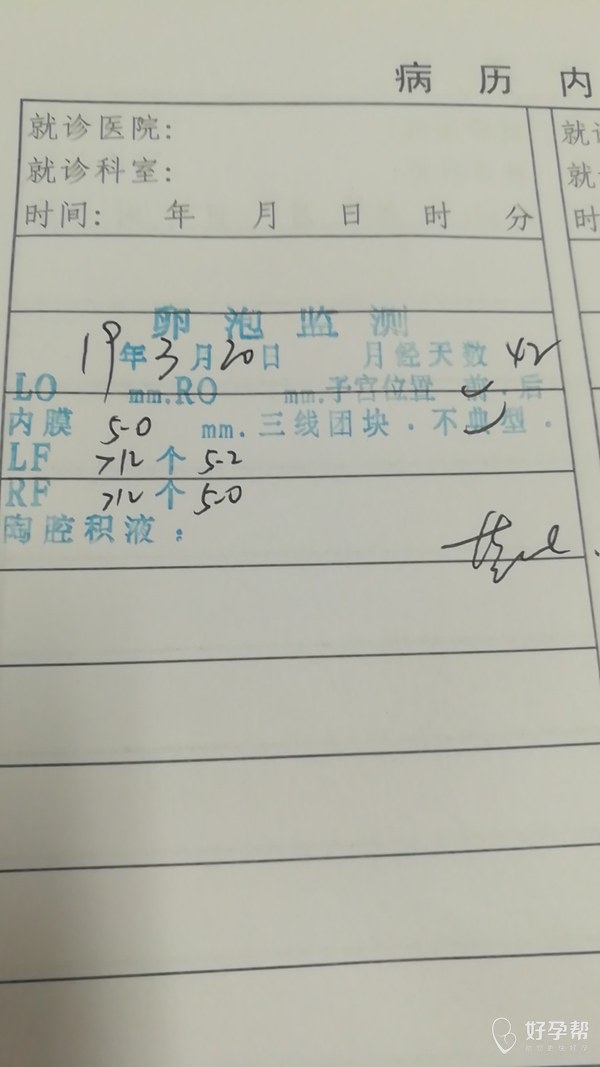 病 历 内
就诊医院:
就诊科室:
时间: 年 月 日 时 分
就
就
时
卵泡监测
19年3月20日 月经天数 42
LO mm.RO mm.子宫位置 前.后
内膜 5.0 mm.三线团块.不典型.
LF >12个 5.2
RF >12个 5.0
陶腔积液:
好孕帮